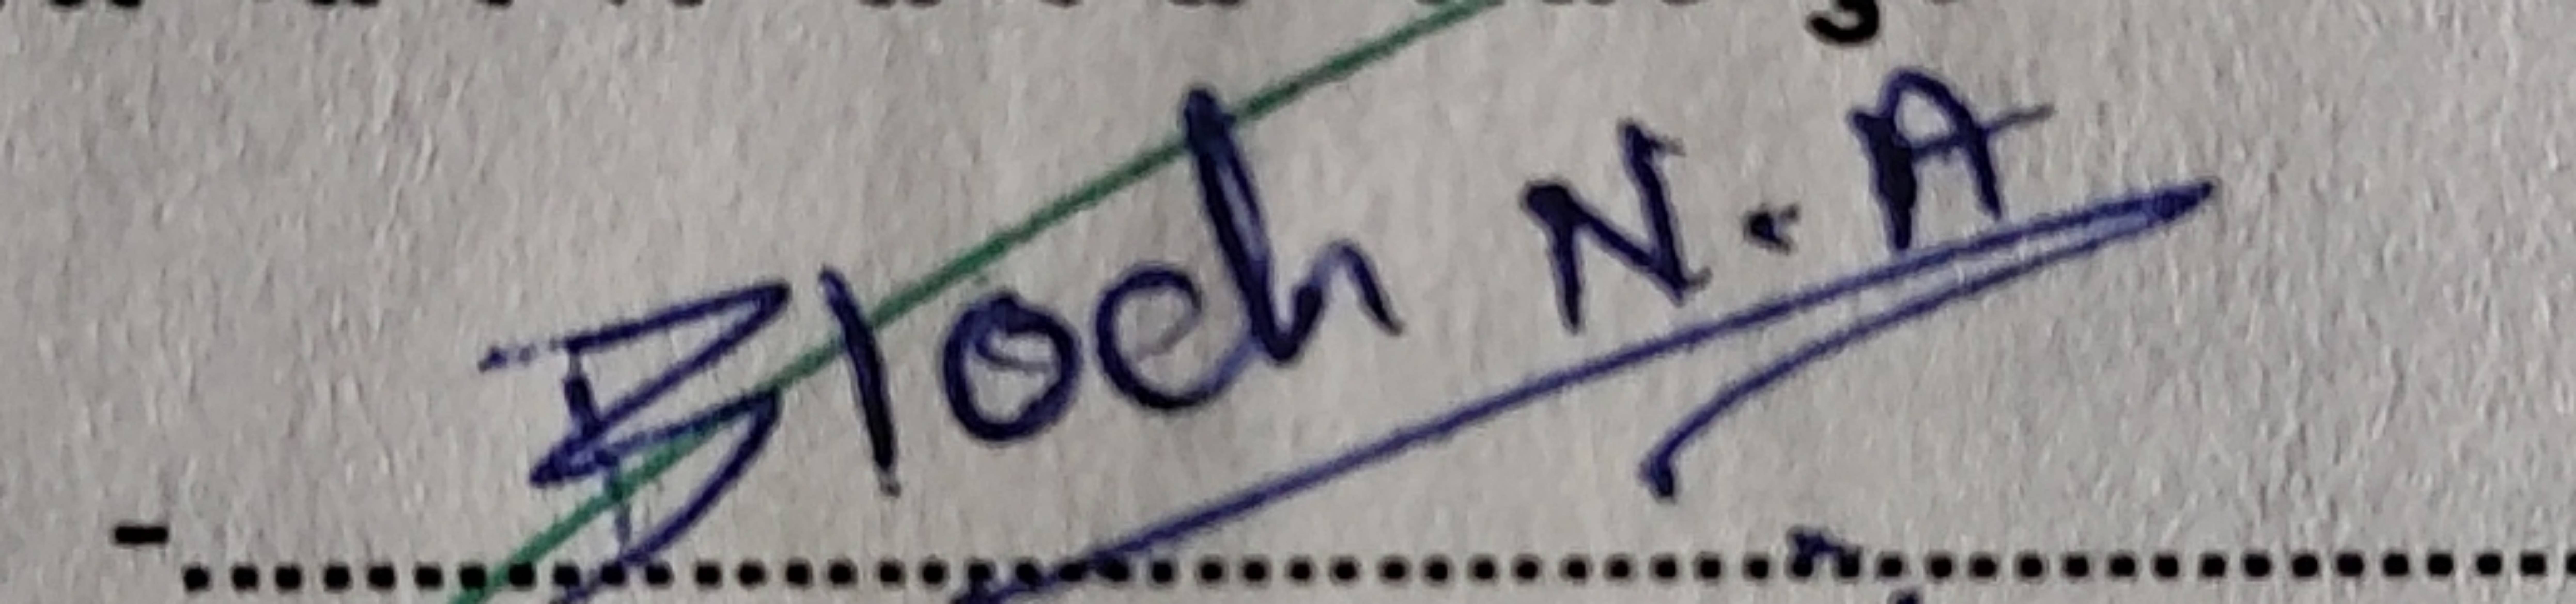 Bloch N.A